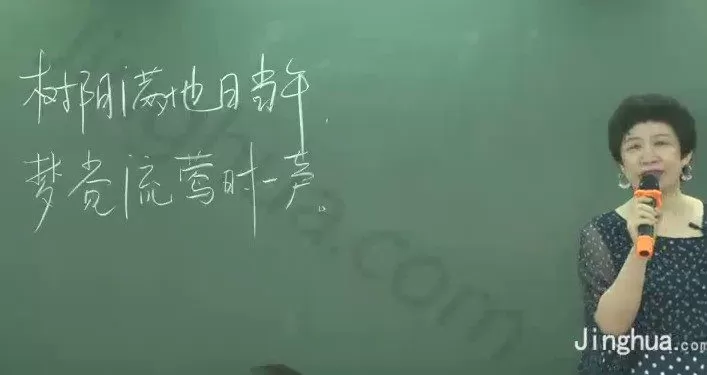 树阴满地日当午,
梦觉流莺时一声。
Jinghua.com